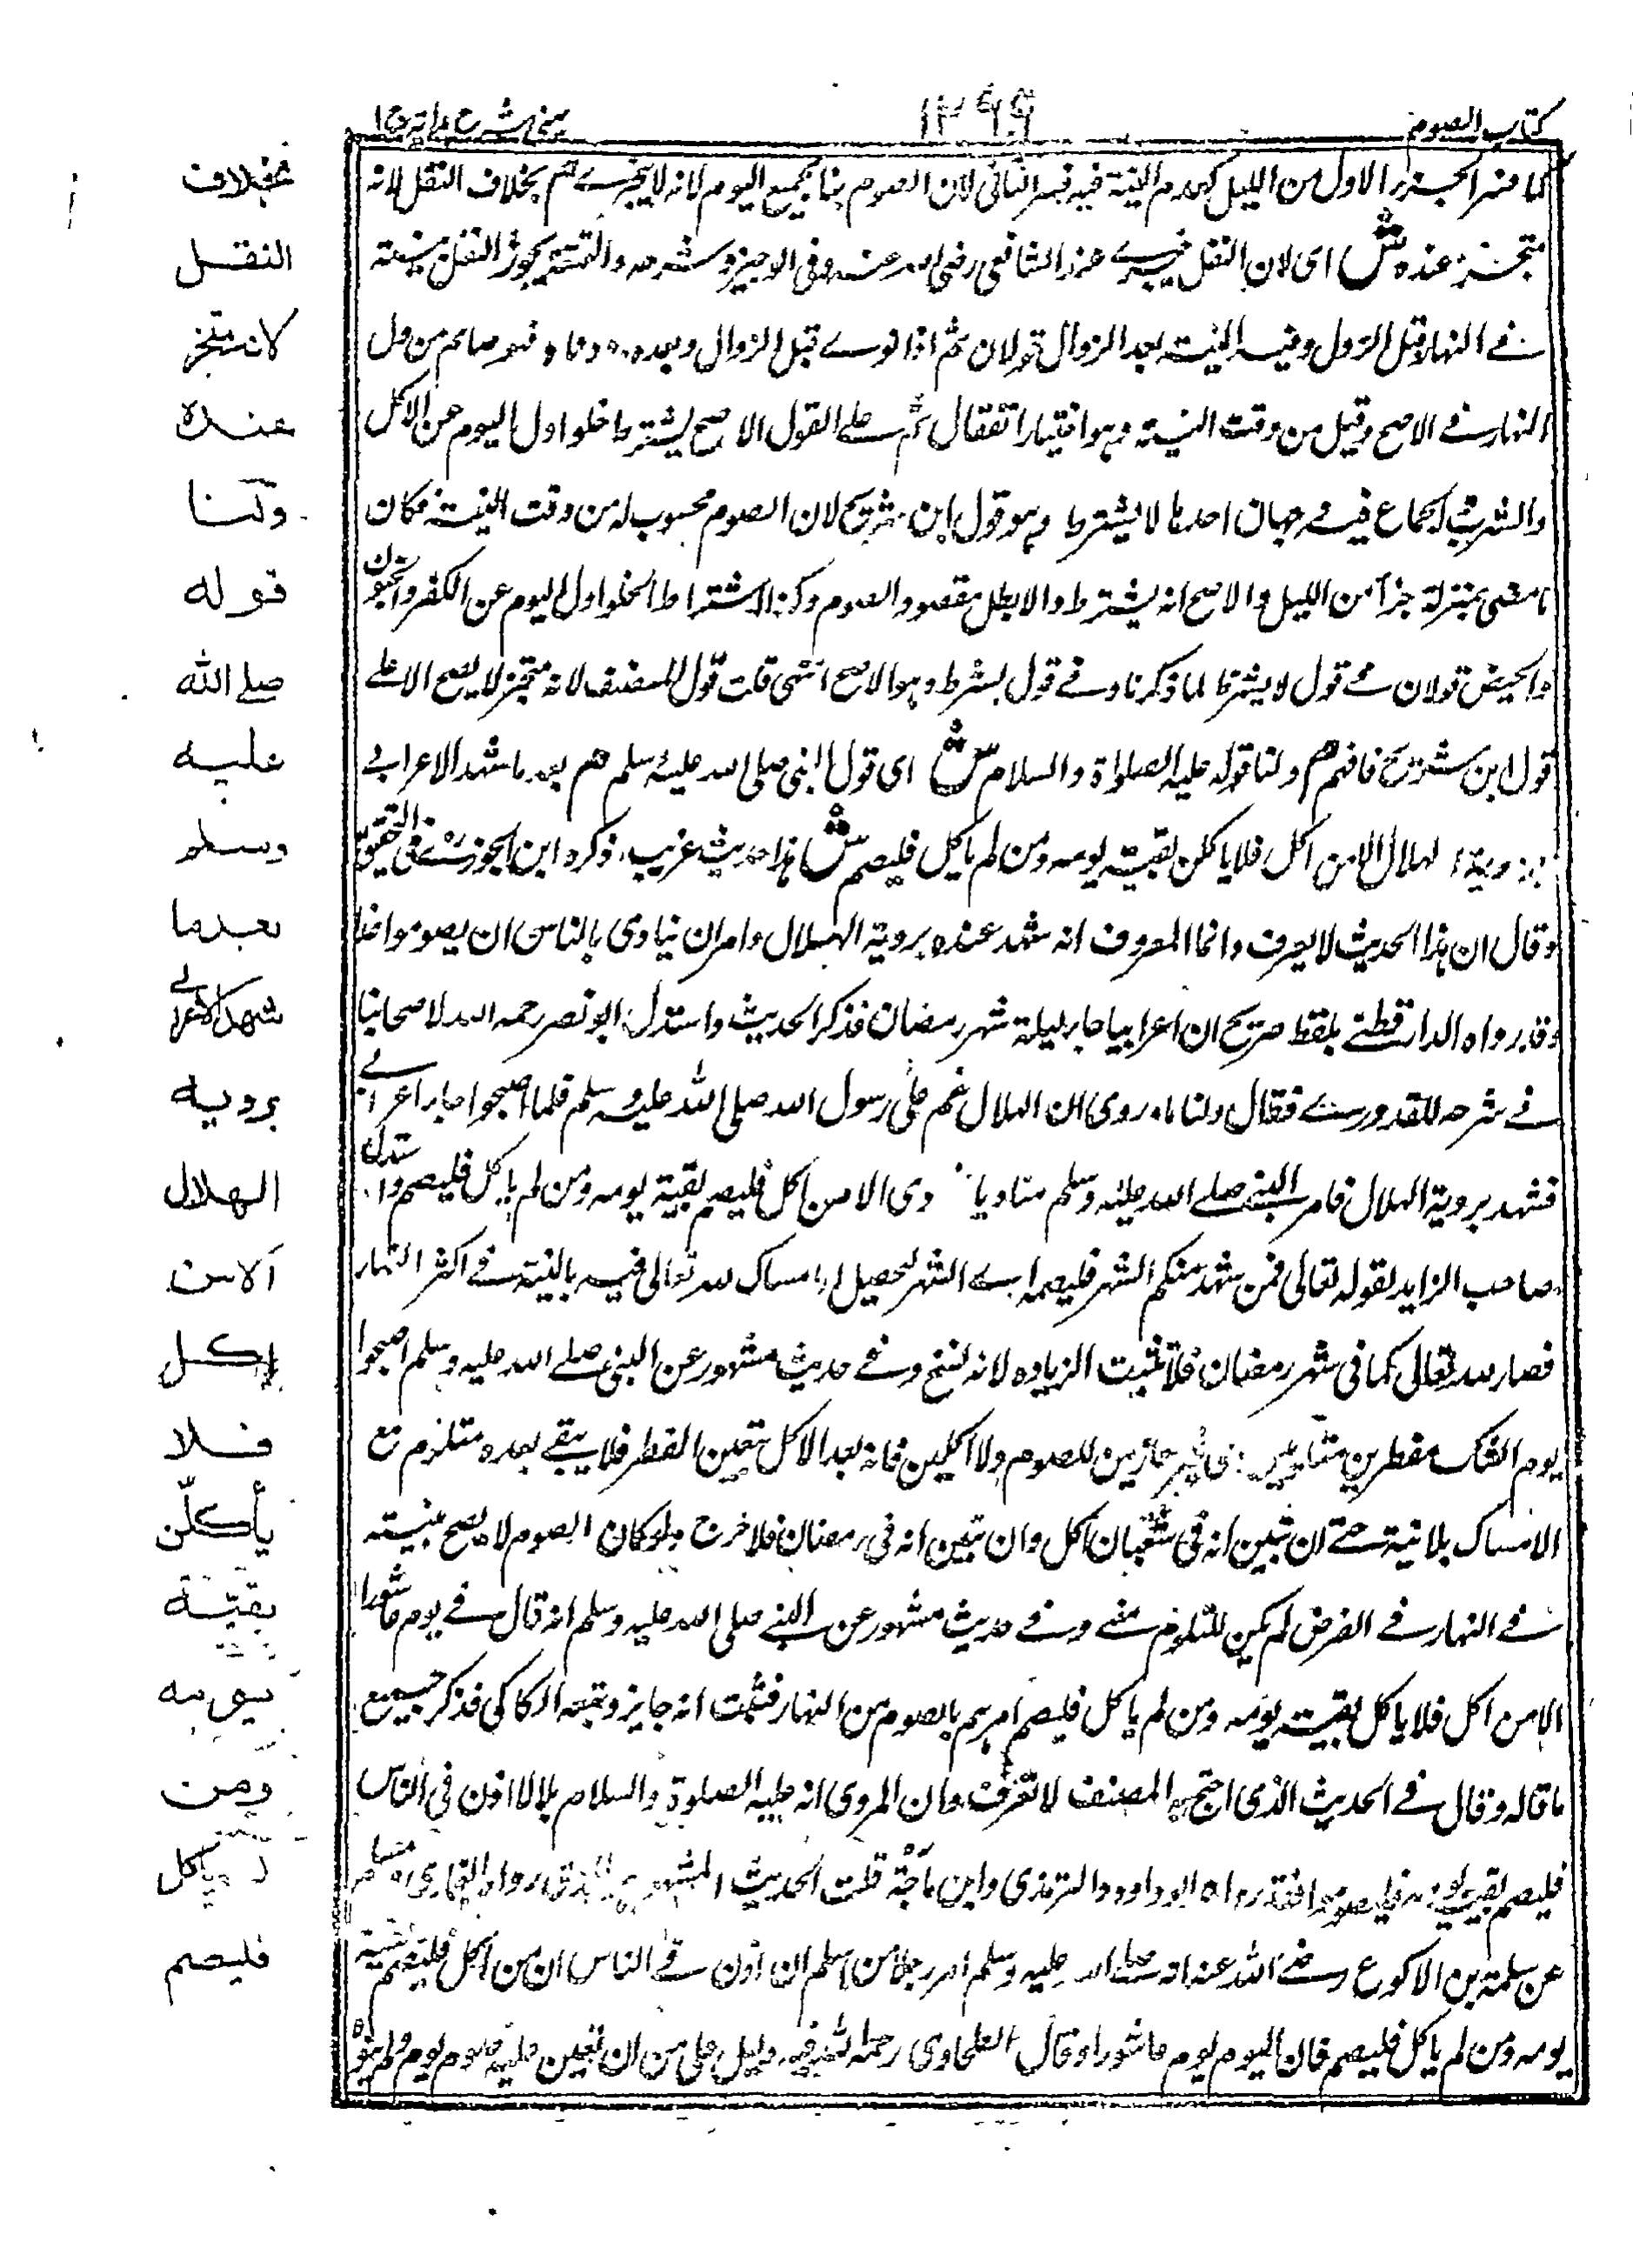 كتاب الصوم
١٢٩٩
عينى شرح هداية ج ١
لما فسد الجزء الاول من الليل لعدم النية فيه فسد الثانى لان الصوم بنا بجميع اليوم لانه لا يتجزى ثم بخلاف النفل لانه
متجز عنده ش اى لان النفل متجزى عند الشافعى رضى الله عنه وفى الوجيز وشرحه والتتمة يجوز النفل بنية
فى النهار قبل الزوال وفيه النية بعد الزوال قولان ثم اذا نوى قبل الزوال وبعده فهو صايم من اول
النهار فى الاصح وقيل من وقت النية وهو اختيار القفال ثم على القول الاصح يشترط خلو اول اليوم عن الاكل
والشرب والجماع فيه وجهان احدهما لا يشترط وهو قول ابن شريح لان الصوم محسوب له من وقت النية فكان
ما مضى بمنزلة جزأ من الليل والاصح انه يشترط والا بطل مقصود الصوم وكذا اشتراط الخلو اول اليوم عن الكفر والجنون
والحيض قولان فى قول لا يشترط لما ذكرنا وفى قول يشترط وهو الاصح انتهى قلت قول المصنف لانه متجز لا يصح الا على
قول ابن شريح فافهم م ولنا قوله عليه الصلواة والسلام ش اى قول النبى صلى الله عليه وسلم م بعد ما شهد الاعرابى
بروية الهلال الا من اكل فلا ياكلن بقية يومه ومن لم ياكل فليصم ش هذا حديث غريب ذكره ابن الجوزى فى التحقيق
وقال ان هذا الحديث لا يعرف وانما المعروف انه شهد عنده بروية الهلال وامر ان ينادى بالناس ان يصوموا غدا
وقد رواه الدارقطنى بلفظ صريح ان اعرابيا جاء ليلة شهر رمضان فذكر الحديث واستدل ابو نصر رحمه الله لاصحابنا
فى شرحه للقدورى فقال ولنا ما روى ان الهلال غم على رسول الله صلى الله عليه وسلم فلما اصبحوا جاء اعرابى
فشهد بروية الهلال فامر النبى صلى الله عليه وسلم مناديا الا من اكل فليصم بقية يومه ومن لم ياكل فليصم واستدل
صاحب الزايد لقوله تعالى فمن شهد منكم الشهر فليصمه اى الشهر لتحصيل الامساك لله تعالى فيه بالنية فى اكثر النهار
فصار لله تعالى كما فى شهر رمضان فلا تثبت الزياده لانه نسخ وفى حديث مشهور عن النبى صلى الله عليه وسلم اصبحوا
يوم الشك مفطرين متلومين غير عازمين للصوم ولا اكلين فانه بعد الاكل تعين الفطر فلا يبقى بعده متلوم مع
الامساك بلا نية حتى ان تبين انه فى شعبان اكل وان تبين انه فى رمضان فلا خرج ولو كان الصوم لا يصح بنيته
فى النهار فى الفرض لم يكن للتلوم معنى وفى حديث مشهور عن النبى صلى الله عليه وسلم انه قال فى يوم عاشورا
الا من اكل فلا ياكل بقية يومه ومن لم ياكل فليصم امرهم بالصوم من النهار فثبت انه جايز وتبعه الكاكى فذكر جميع
ما قاله وقال فى الحديث الذى احتج به المصنف لا تعرف وان المروى انه عليه الصلوة والسلام بلالا اذن فى الناس
فليصم بقية يومه فليصوموا فقد رواه ابو داوود والترمذى وابن ماجة قلت الحديث المشهور الذى رواه البخارى ومسلم
عن سلمة بن الاكوع رضى الله عنه انه صلى الله عليه وسلم امر رجلا من اسلم ان اذن فى الناس ان من اكل فليصم بقية
يومه ومن لم ياكل فليصم فان اليوم يوم عاشورا وقال الطحاوى رحمه الله فيه دليل على من ان تعين عليه صوم يوم ولم ينوه
بخلاف
النفل
لانه متجز
عنده
ولنا
قوله
صلى الله
عليه
وسلم
بعد ما
شهد الاعرابى
بروية
الهلال
الا من
اكل
فلا
يأكلنّ
بقيّة
يومه
ومن
لم ياكل
فليصم